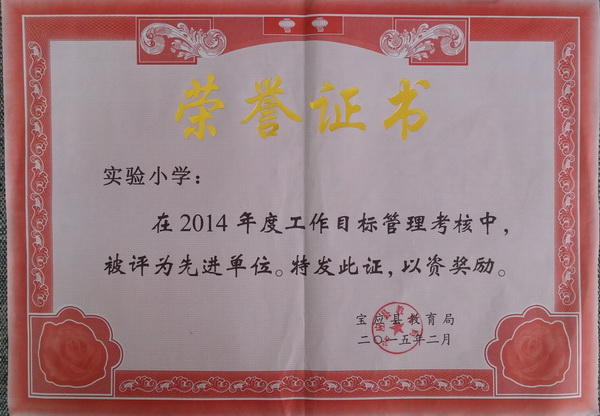 荣誉证书
实验小学：
在2014年度工作目标管理考核中，
被评为先进单位。特发此证，以资奖励。
宝应县教育局
二〇一五年二月